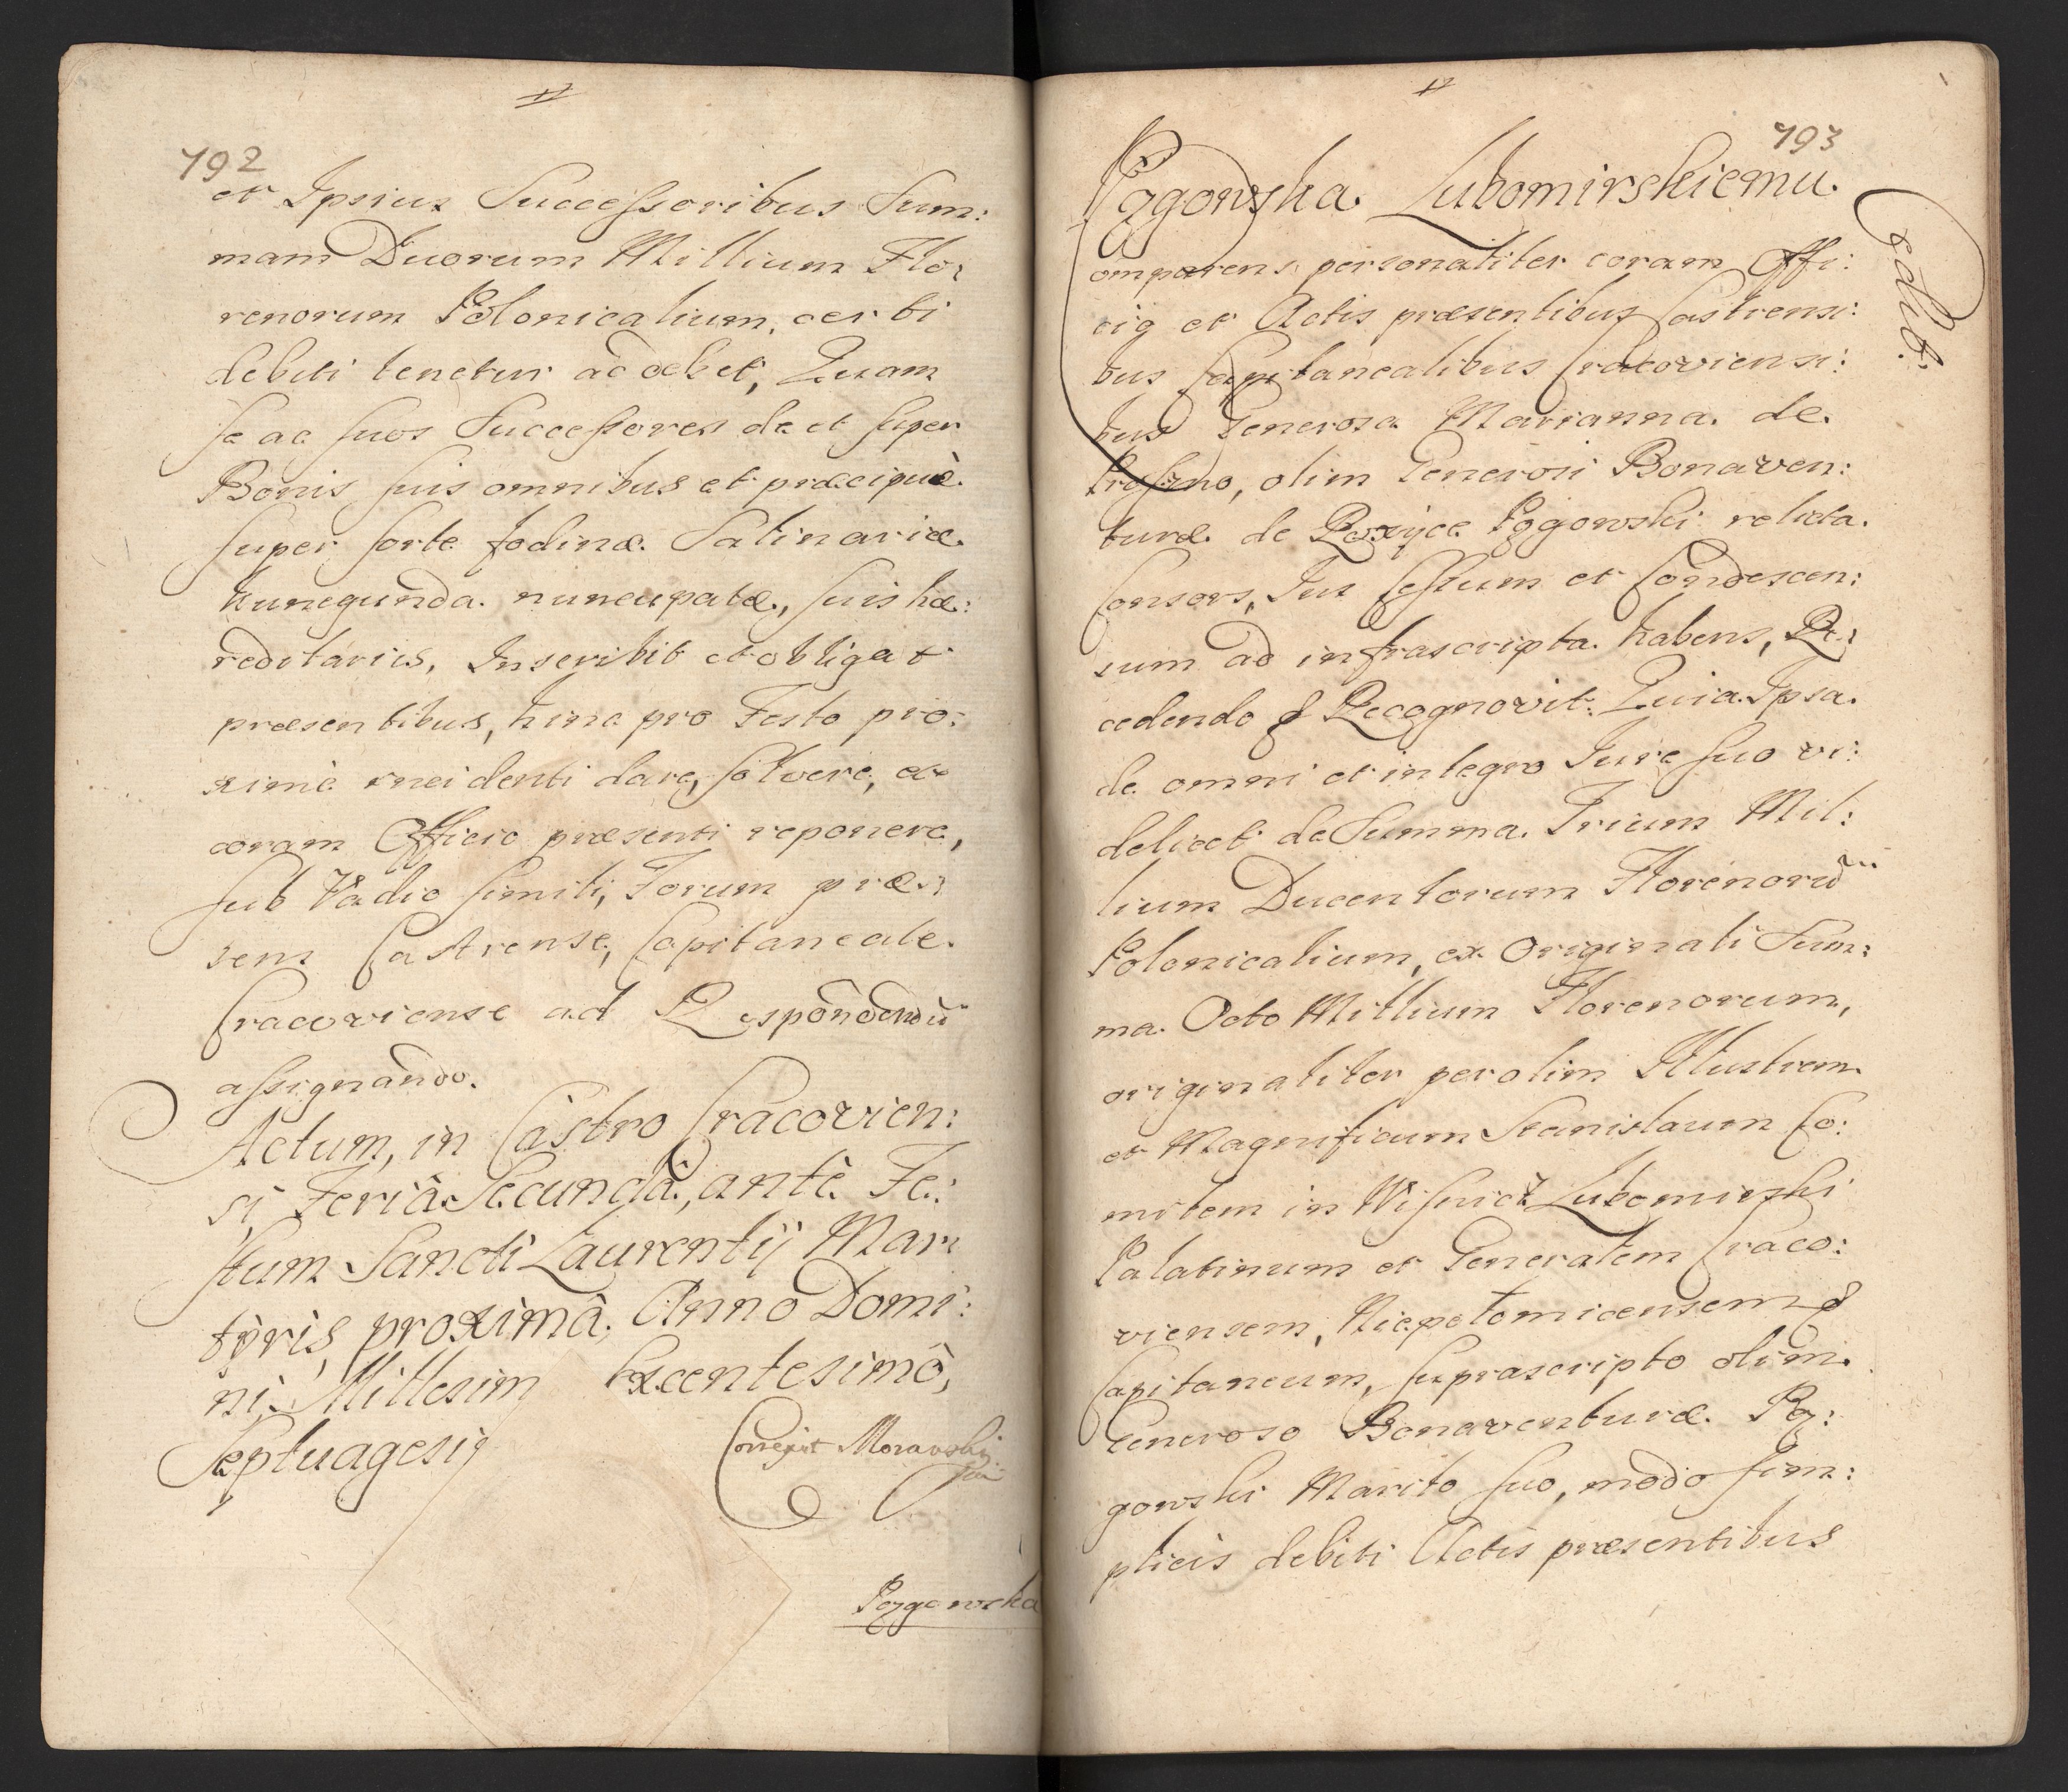 792
et Ipsius Successoribus Sum:
mam Duorum Millium Flo:
renorum Polonicalium, certi
debiti tenetur ac debet, Quam
se ac suos Successores de et super
Bonis suis omnibus et præcipuè
super sorte fodinæ Salinariæ
Kunegunda nuncupatæ, suis hæ:
reditariis, Inscribit et obligat
præsentibus, hinc pro Festo pro:
ximè incidenti dare, solvere, ac
coram Officio præsenti reponere,
sub Vadio simili, Forum præ:
sens Castrense, Capitaneale
Cracoviense ad Respondendũ
assignando.
Actum, in Castro Cracovien:
si, Feriâ Secundâ, antè Fe:
stum Sancti Laurentij Mar:
tyris, proximâ, Anno Domi:
ni Millesim centesimô,
Septuagesi
Correxit Moravski
Pozgowska
793
Pozgowska Lubomirskiemu.
Cedit.
Comparens personaliter coram Offi:
cio et Actis præsentibus Castrensi:
bus Capitanealibus Cracoviensi:
bus Generosa Marianna de
olim Generosi Bonaven:
turæ de Pozgowski relicta
Consors, Jus Cessum et Condescen:
sum ad infrascripta habens, Re:
cedendo & Recognovit. Quia Ipsa
de omni et integro Jure suo vi:
delicet de Summa Trium Mil:
lium Ducentorum Florenorũ
Polonicalium, ex Originali Sum:
ma Octo Millium Florenorum,
originaliter per olim Illustrem
et Magnificum Stanislaum Co:
mitem in Wisnicz Lubomirski
Palatinum et Generalem Craco:
viensem, Niepolomicensem &
Capitaneum, suprascripto olim
Generoso Bonaventuræ Poz:
gowski Marito suo, modo sim:
plicis debiti Actis præsentibus